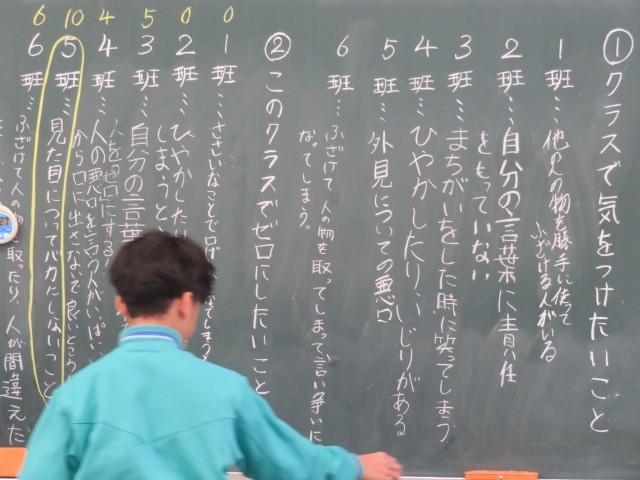 ①クラスで気をつけたいこと
1班…他の人の物を勝手に使って
ふざける人がいる
2班…自分の言葉に責任
をもっていない
3班…まちがいをした時に笑ってしまう
4班…ひやかしたり、いじりがある
5班…外見についての悪口
6班…ふざけて人の物を取ってしまって言い争いに
なってしまう。
②このクラスでゼロにしたいこと
0
1班…ささいなことで口げ
てしまう
0
2班…ひやかしたり
しまうと
5
3班…自分の言葉
人を
にする
4
4班…人の悪口を言う人がいっぱい
から口に出さないで良いところ
10
5班…見た目についてバカにしないこと
6
6班…ふざけて人の
取ったり、人が間違えた